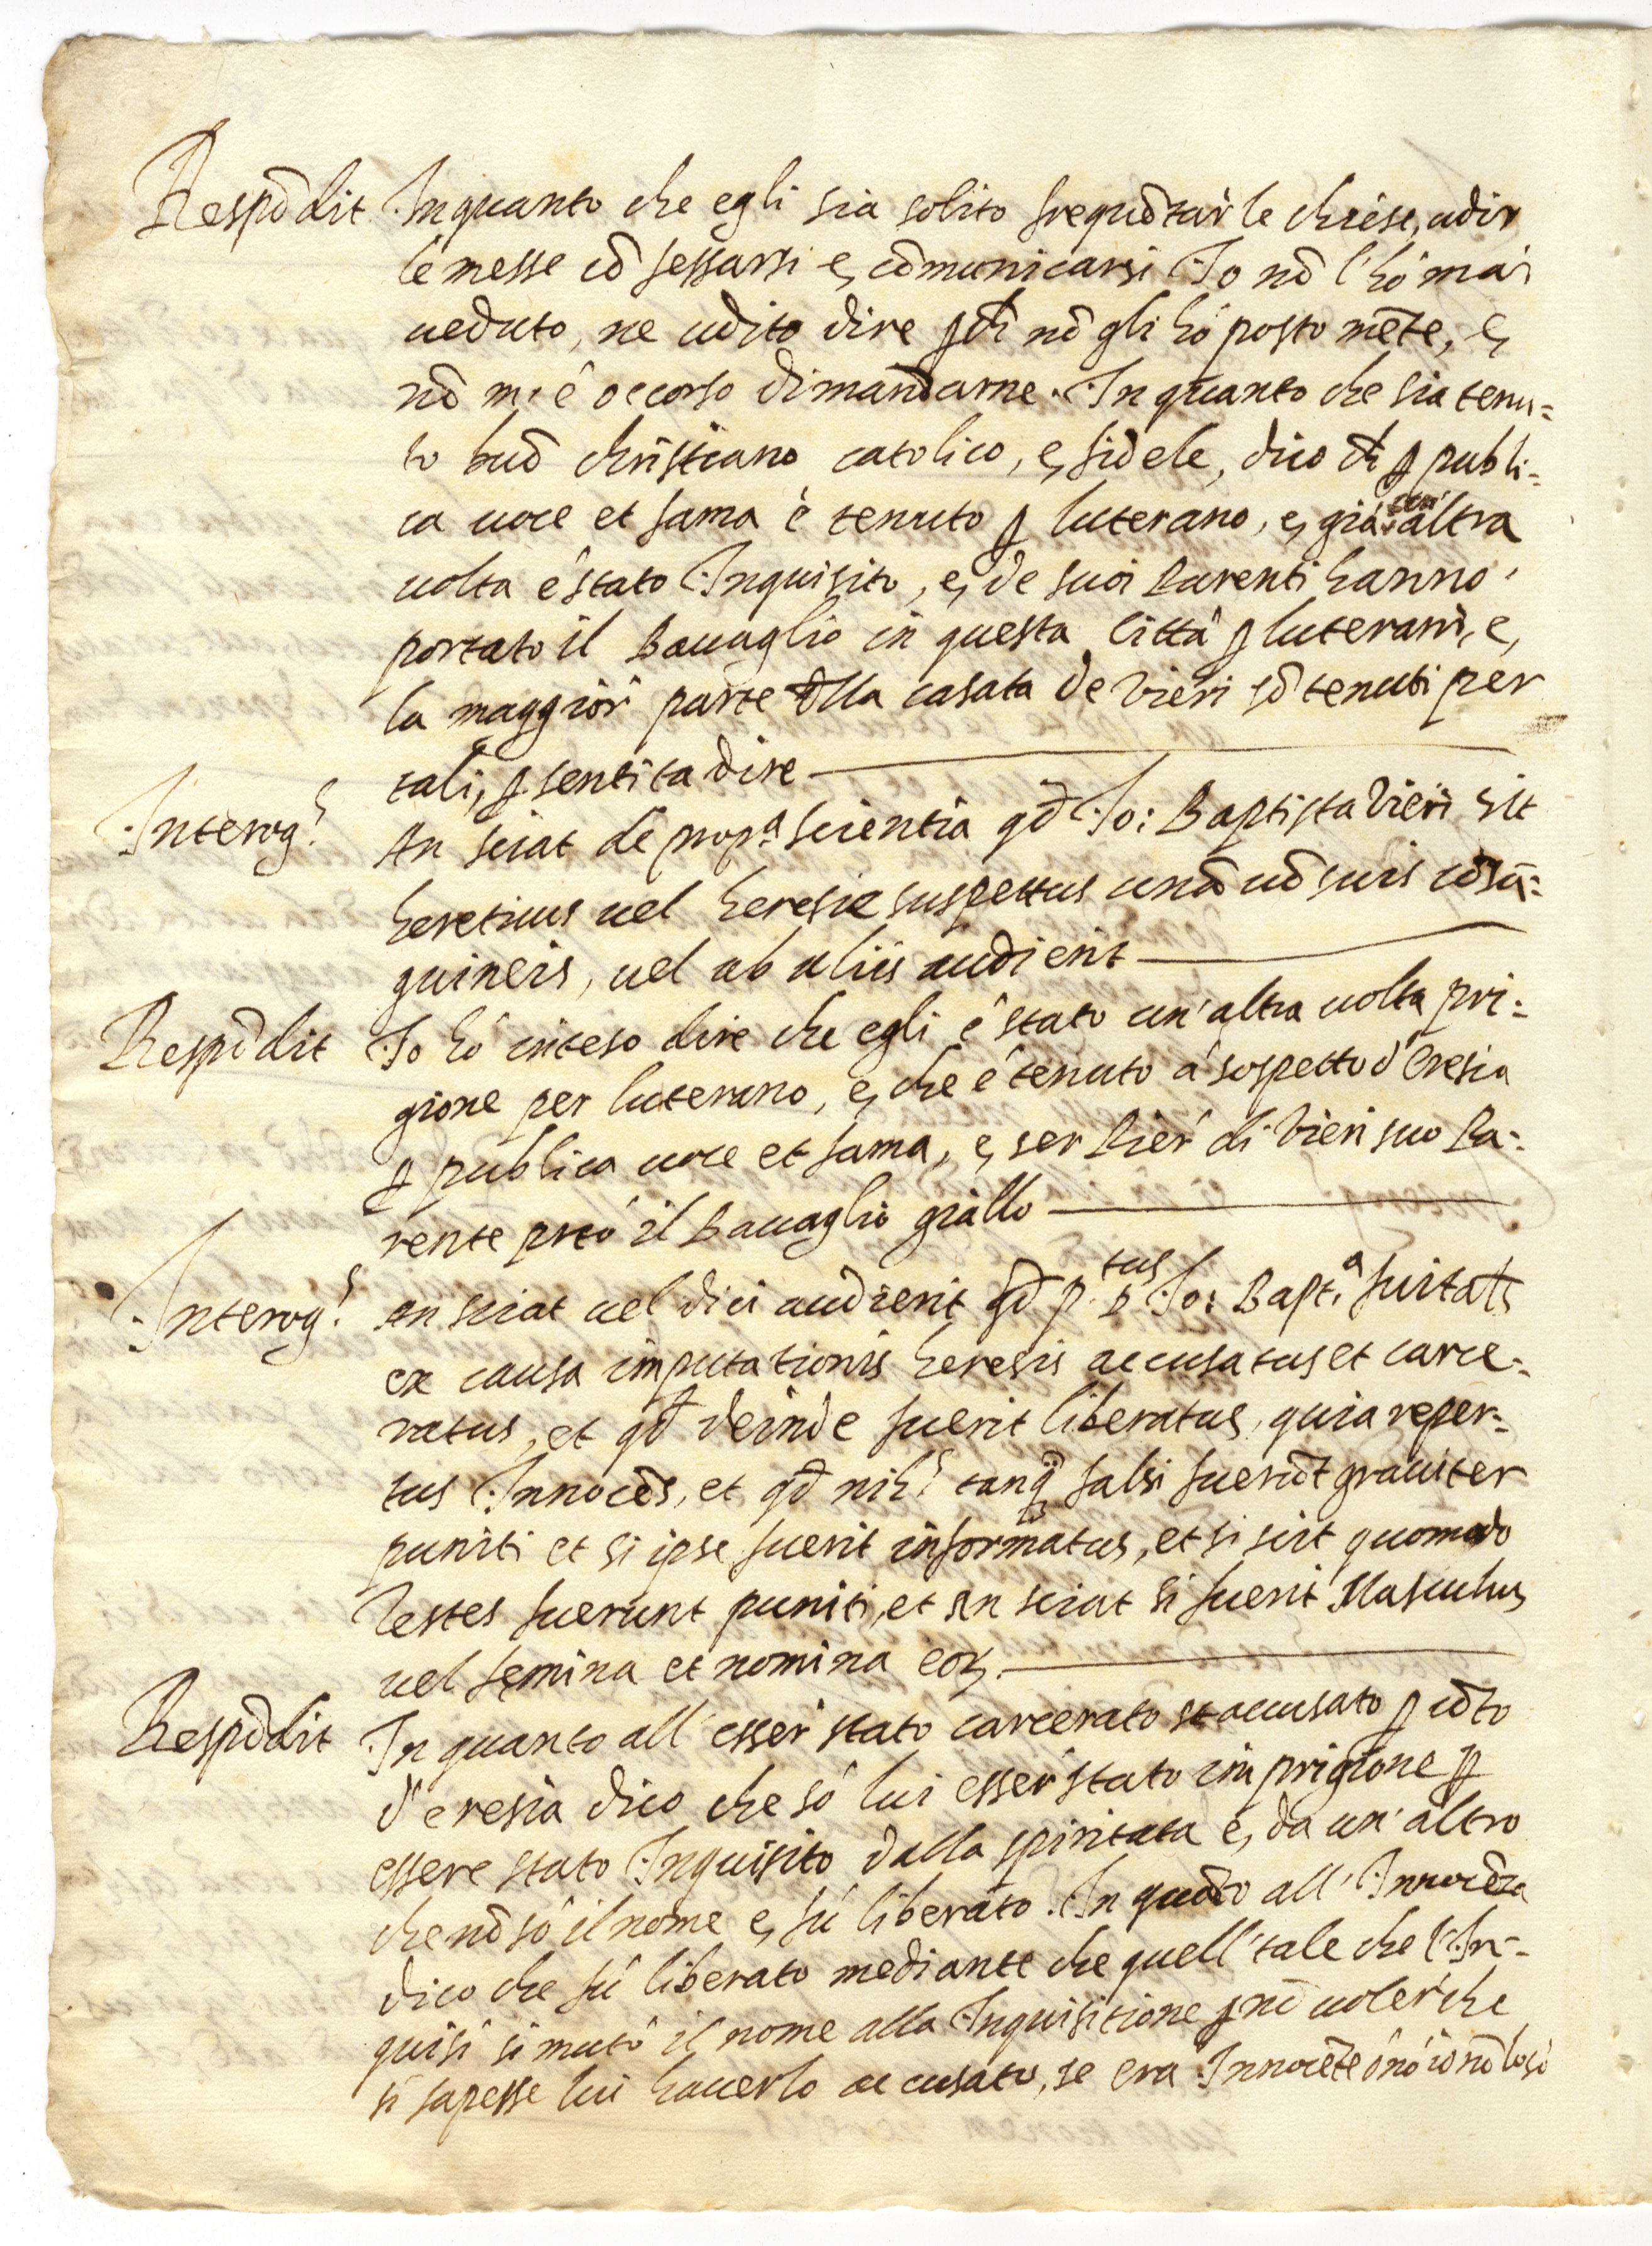 Respõdit Inquanto che egli sia solito frequẽtar le chiese, udir
le messe cõfessarsi e, cõmunicarsi Io nõ l'hó mai
ueduto, ne udito dire ꝑch nõ gli hó posto mẽte, e,
nõ mi é occorso dimandarne. In quanto che sia tenu=
to buõ christiano catolico, e, fidele, dico ch ꝑ publi=
ca uoce et fama è tenuto ꝑ luterano, e, già un' altra
uolta é stato Inquisito, e, de suoi Parenti hanno
portato il Bauaglio in questa Città ꝑ luterani, e,
la maggior parte dlla casata de Vieri sõ tenuti per
tali, ꝑ sentita dire
Interog.s An sciat de prop.a scientia qd Io: Baptista Vieri sit
hereticus uel heresie suspettus unà cũ suis cõsã=
guineis, uel ab aliis audierit
Respõdit Io hó inteso dire che egli é stato un'altra uolta pri=
gione per luterano, e, che é tenuto á sospetto d'eresia
ꝑ publica uoce et fama, e, ser Pier di Vieri suo Pa=
rente prtó il Bauaglio giallo
Interog.s An sciat uel dici audierit qd p.tus Io: Bapt.a fuit als
ex causa imputationis heresis accusatus et carce=
ratus, et qd deinde fuerit liberatus, quia reper=
tus Innocẽs, et qd tanq̃ falsi fuerũt grauiter
puniti et si ipse fuerit informatus, et si scit quomodo
Testes fuerunt puniti, et An sciat si fuerit Masculus
uel femina et nomina eoꝝ.
Respõdit In quanto all'esser stato carcerato et accusato ꝑ cõto
d'eresia dico che só lui esser stato im prigione ꝑ
essere stato Inquisito dalla spiritata e, da un' altro
che nõ só il nome e, fú liberato. In quãto all'Innocẽza
dico che fú liberato mediante che quell'tale che l'In=
quisí si mutó il nome alla Inquisitione ꝑ nõ uoler che
si sapesse lui hauerlo accusato, se era Innocẽte ó nó io nõ lo só